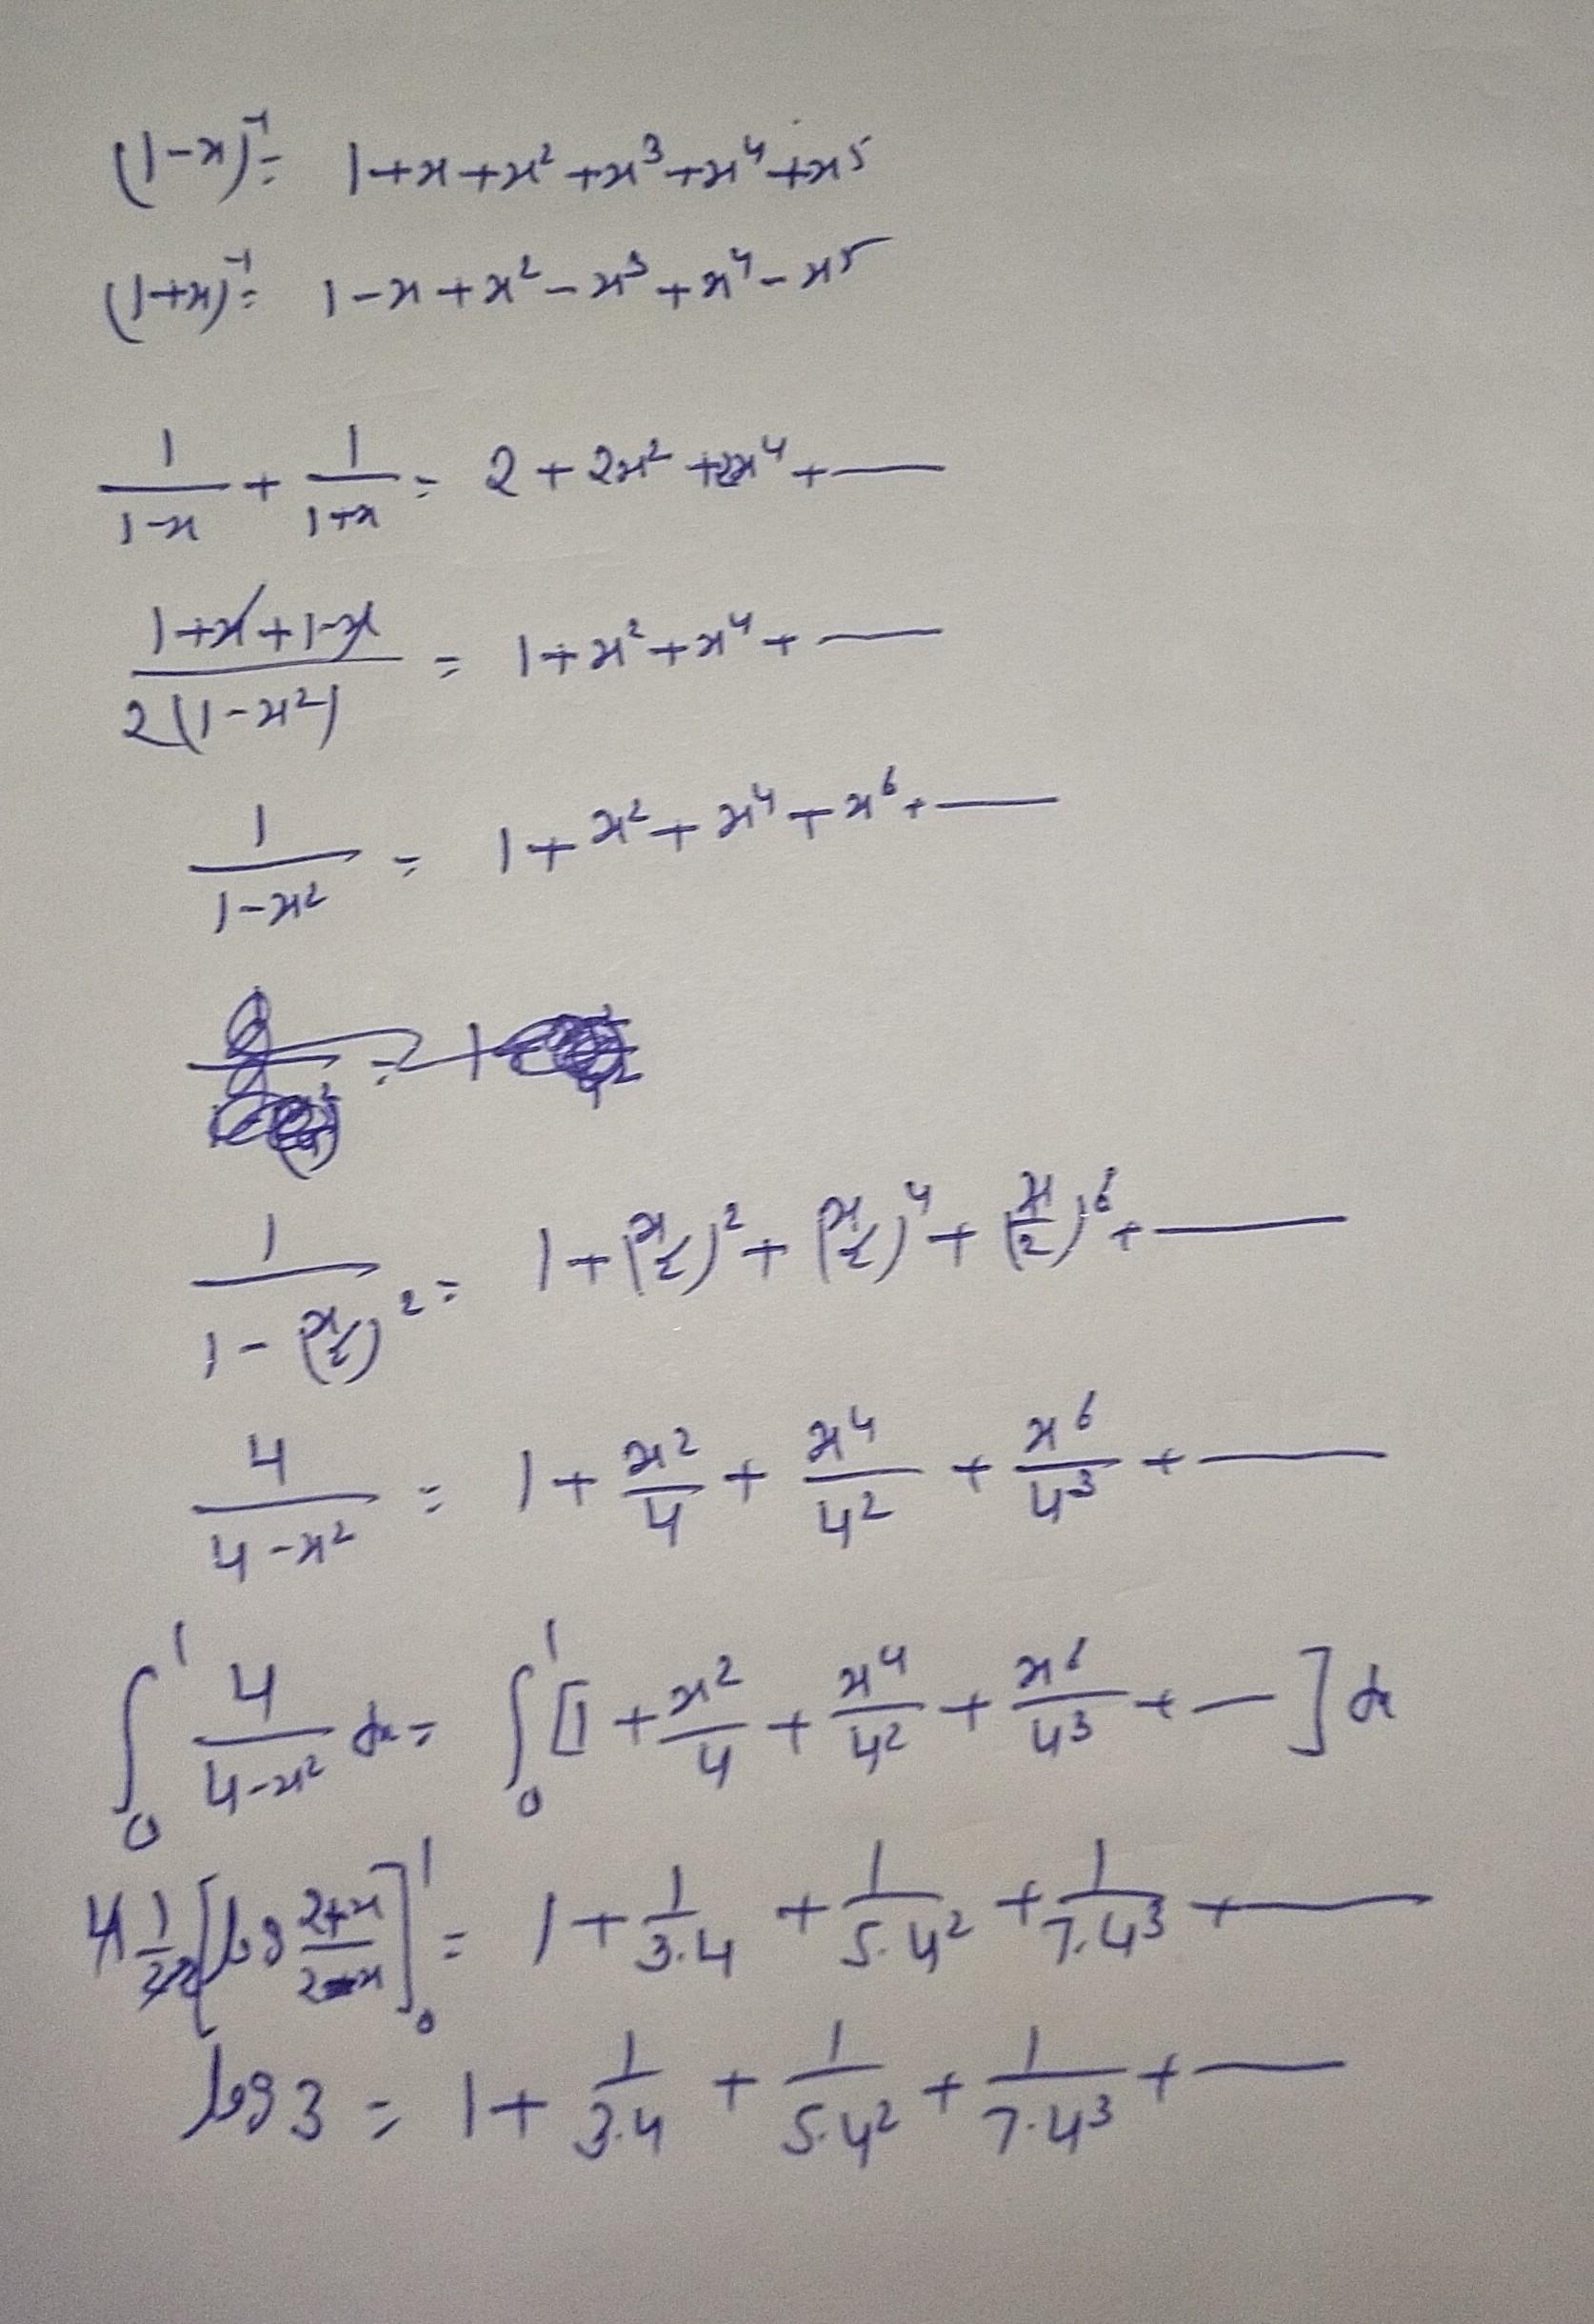 (1-x)⁻¹ = 1+x+x²+x³+x⁴+x⁵
(1+x)⁻¹ = 1-x+x²-x³+x⁴-x⁵
1/(1-x) + 1/(1+x) = 2+2x²+2x⁴+——
(1+x+1-x)/(2(1-x²)) = 1+x²+x⁴+——
1/(1-x²) = 1+x²+x⁴+x⁶+——
1/(1-(x/2)²) = 1+(x/2)²+(x/2)⁴+(x/2)⁶+——
4/(4-x²) = 1+x²/4+x⁴/4²+x⁶/4³+——
∫₀¹ 4/(4-x²) dx = ∫₀¹ [1+x²/4+x⁴/4²+x⁶/4³+—] dx
4 1/(2·2) [log (2+x)/(2-x)]₀¹ = 1+1/(3.4)+1/(5.4²)+1/(7.4³)+——
log 3 = 1+1/(3.4)+1/(5.4²)+1/(7.4³)+——